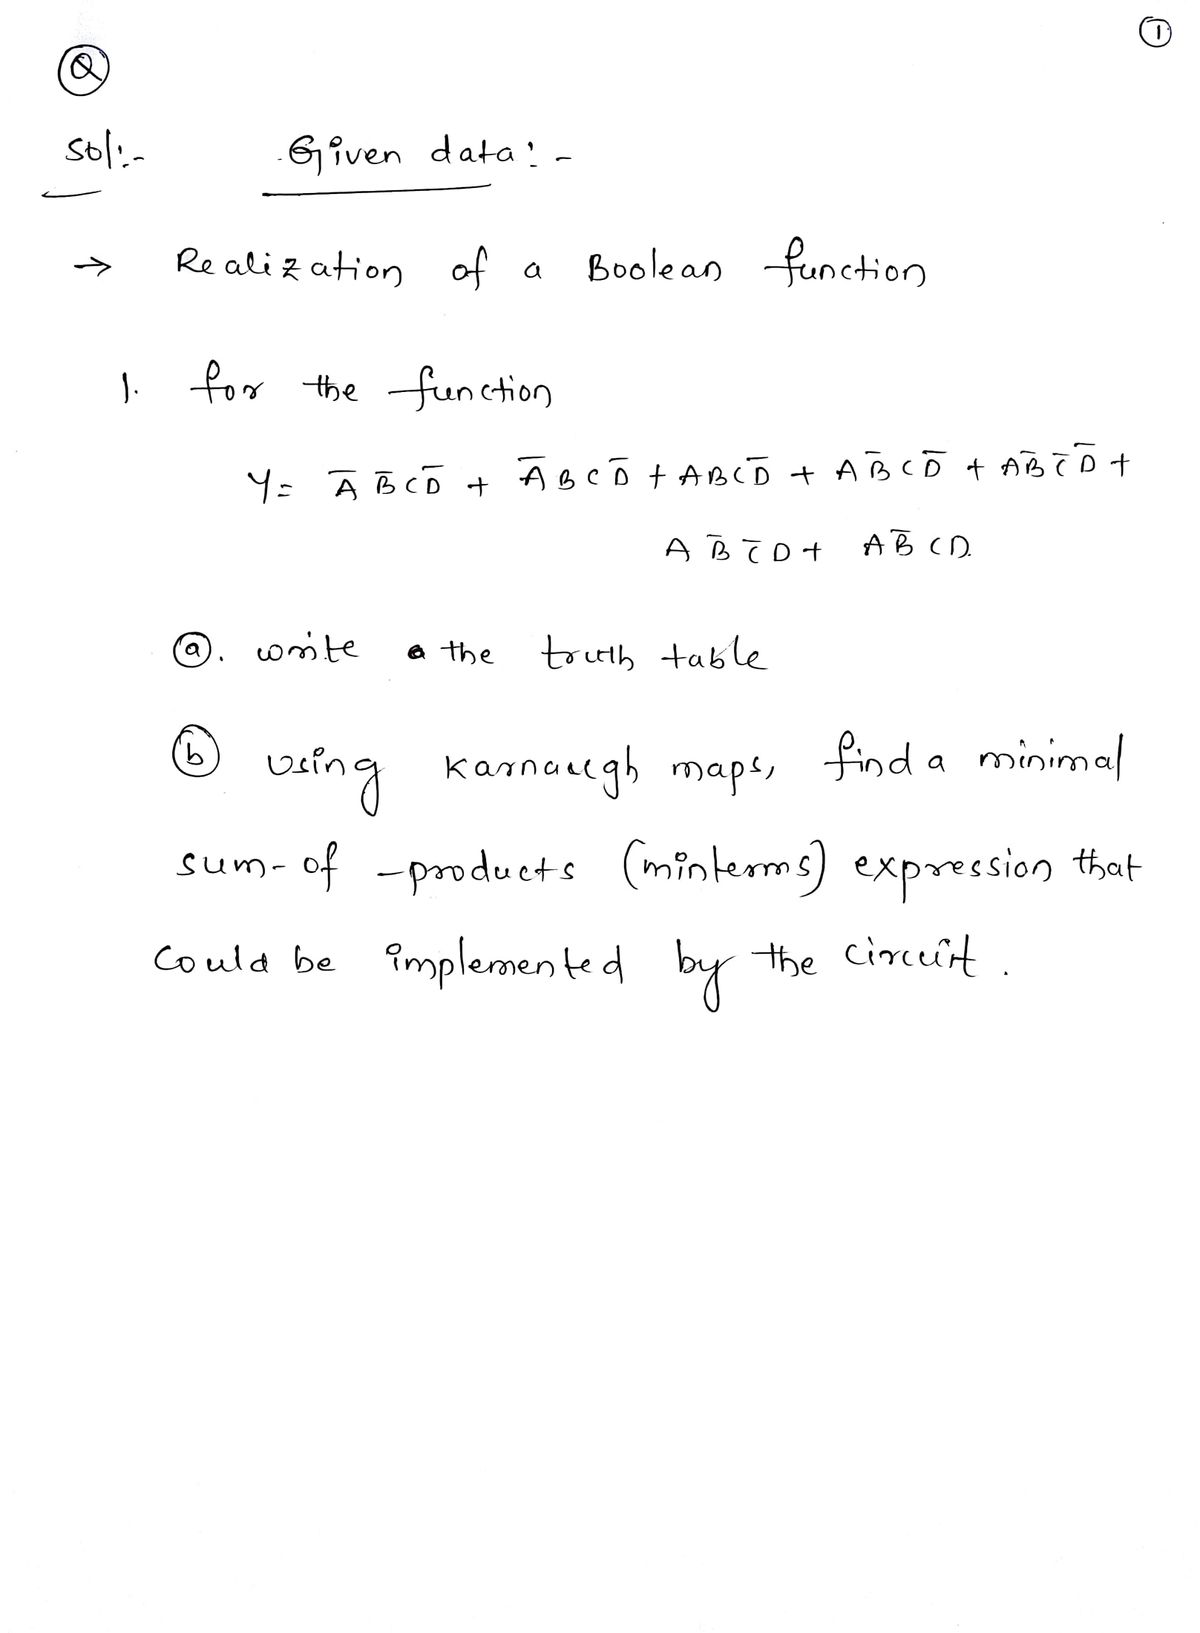 ①
Ⓠ
Sol:- Given data:-
→ Realization of a Boolean function
1. for the function
Y = A̅ B̅ C D̅ + A̅ B C D̅ + A B C D̅ + A B̅ C D̅ + A B̅ C̅ D̅ +
A B̅ C̅ D + A B̅ C D.
ⓐ. write the truth table
ⓑ using karnaugh maps, find a minimal
sum-of-products (minterms) expression that
could be implemented by the circuit.